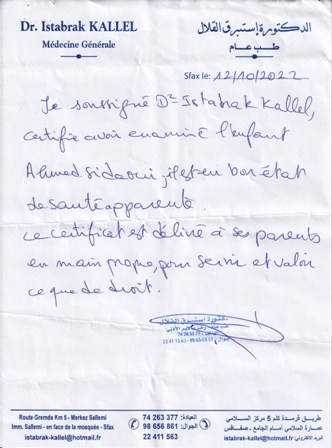 Dr. Istabrak KALLEL
Médecine Générale
الدكتورة إستبرق القلال
طب عام
Sfax le: 12/10/2022
Je soussigné Dr Istabrak Kallel,
certifie avoir examiné l'enfant
Ahmed Sidaoui, il est en bon état
de santé apparente.
ce certificat est délivré à ses parents
en main propre, pour servir et valoir
ce que de droit.
الدكتورة إستبرق القلال
Route Gremda Km 5 - Merkez Sallemi
Imm. Sallemi - en face de la mosquée - Sfax
istabrak-kallel@hotmail.fr
74 263 377 :العيادة
98 656 861 :الجوال
22 411 563
طريق قرمدة كلم 5 مركز السلامي
عمارة السلامي أمام الجامع - صفاقس
istabrak-kallel@hotmail.fr :البريد الإلكتروني